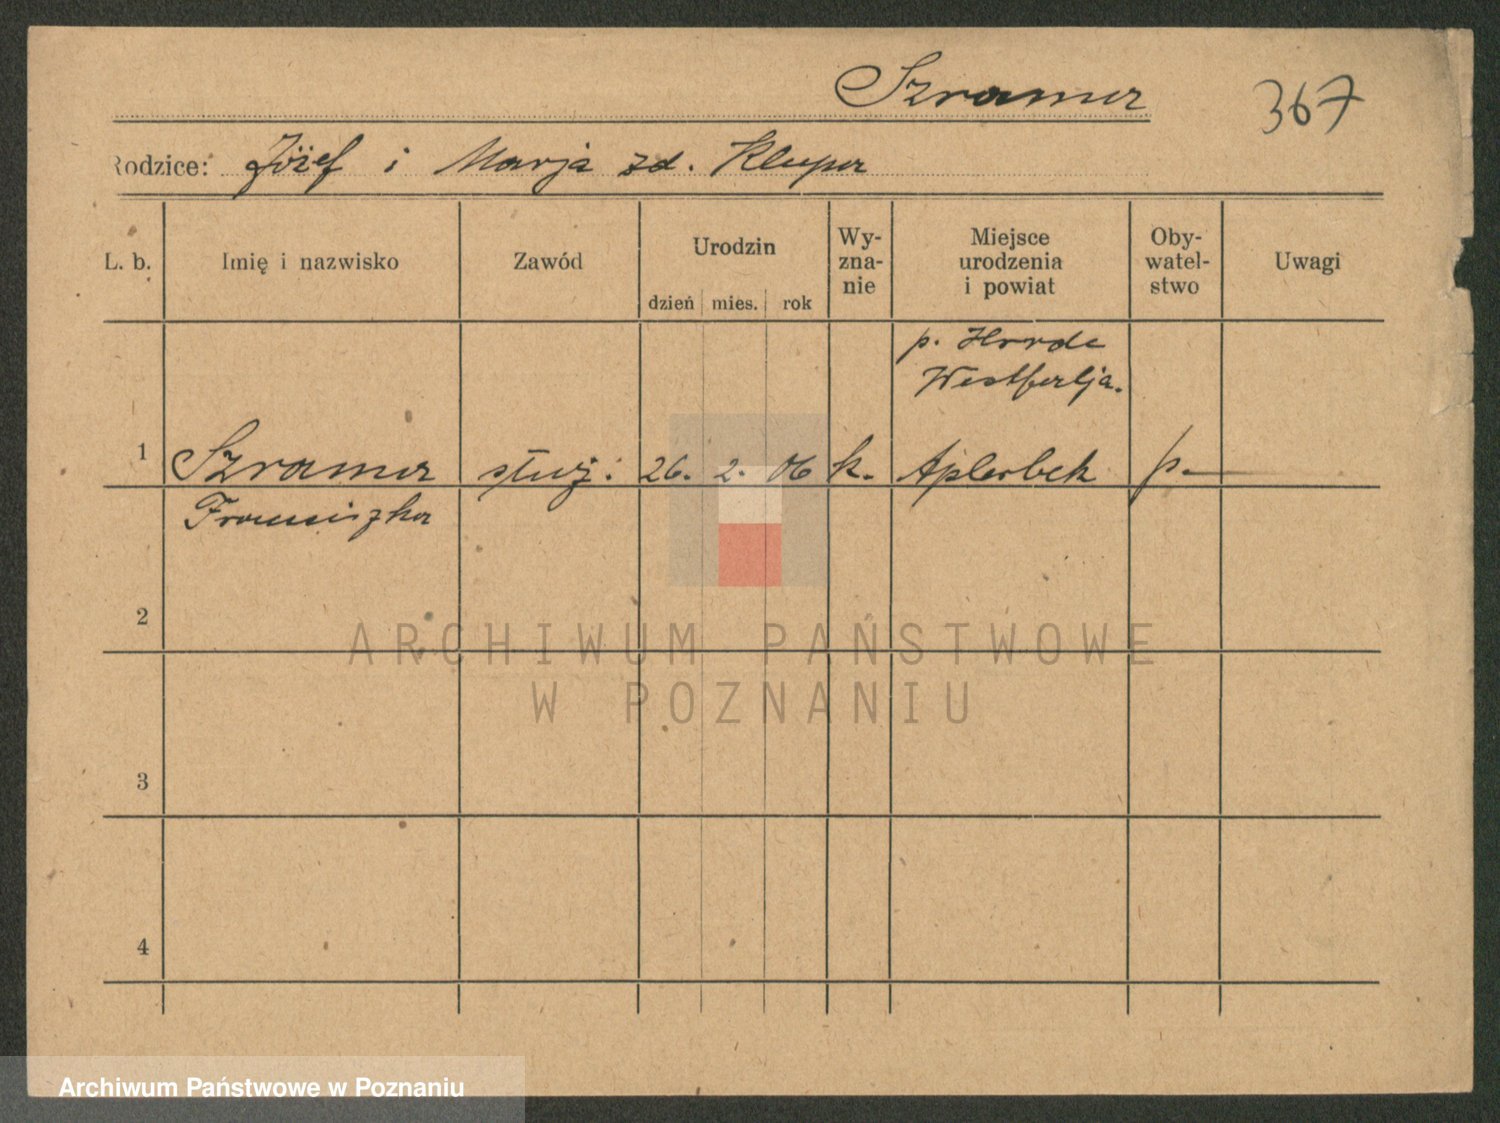 Szrama
367
Rodzice: Józef i Marja zd. Klupa
L. b.
Imię i nazwisko
Zawód
Urodzin
dzień mies. rok
Wy-
zna-
nie
Miejsce
urodzenia
i powiat
Oby-
watel-
stwo
Uwagi
p. Hörde
Westferlja.
1 Szrama służ. 26. 2. 06 k. Aplerbek p.
Franciszka
2
3
4
ARCHIWUM PAŃSTWOWE
W POZNANIU
Archiwum Państwowe w Poznaniu